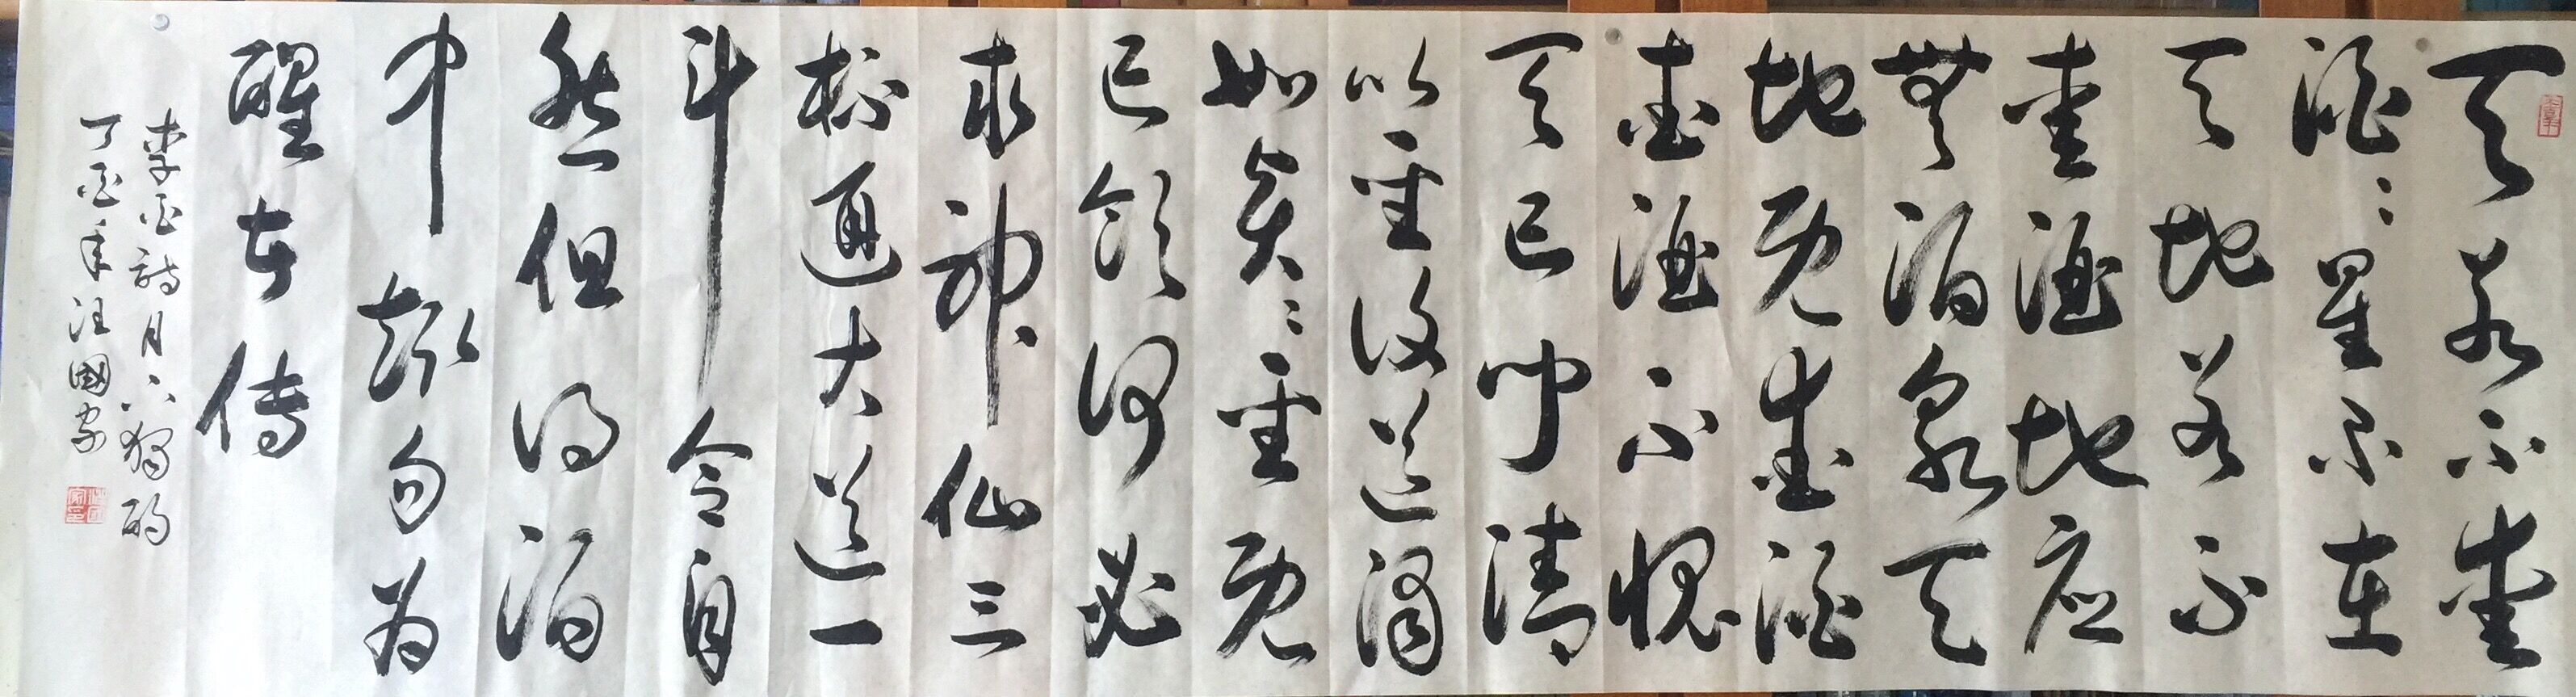 天若不爱
酒〻星不在
天地若不
爱酒地应
無酒泉天
地既爱酒
爱酒不愧
天已闻清
比圣復道濁
如贤〻圣既
已飲何必
求神仙三
杯通大道一
斗合自
然但得酒
中趣勿为
醒者传
李白詩月下獨酌
丁酉年汪國家